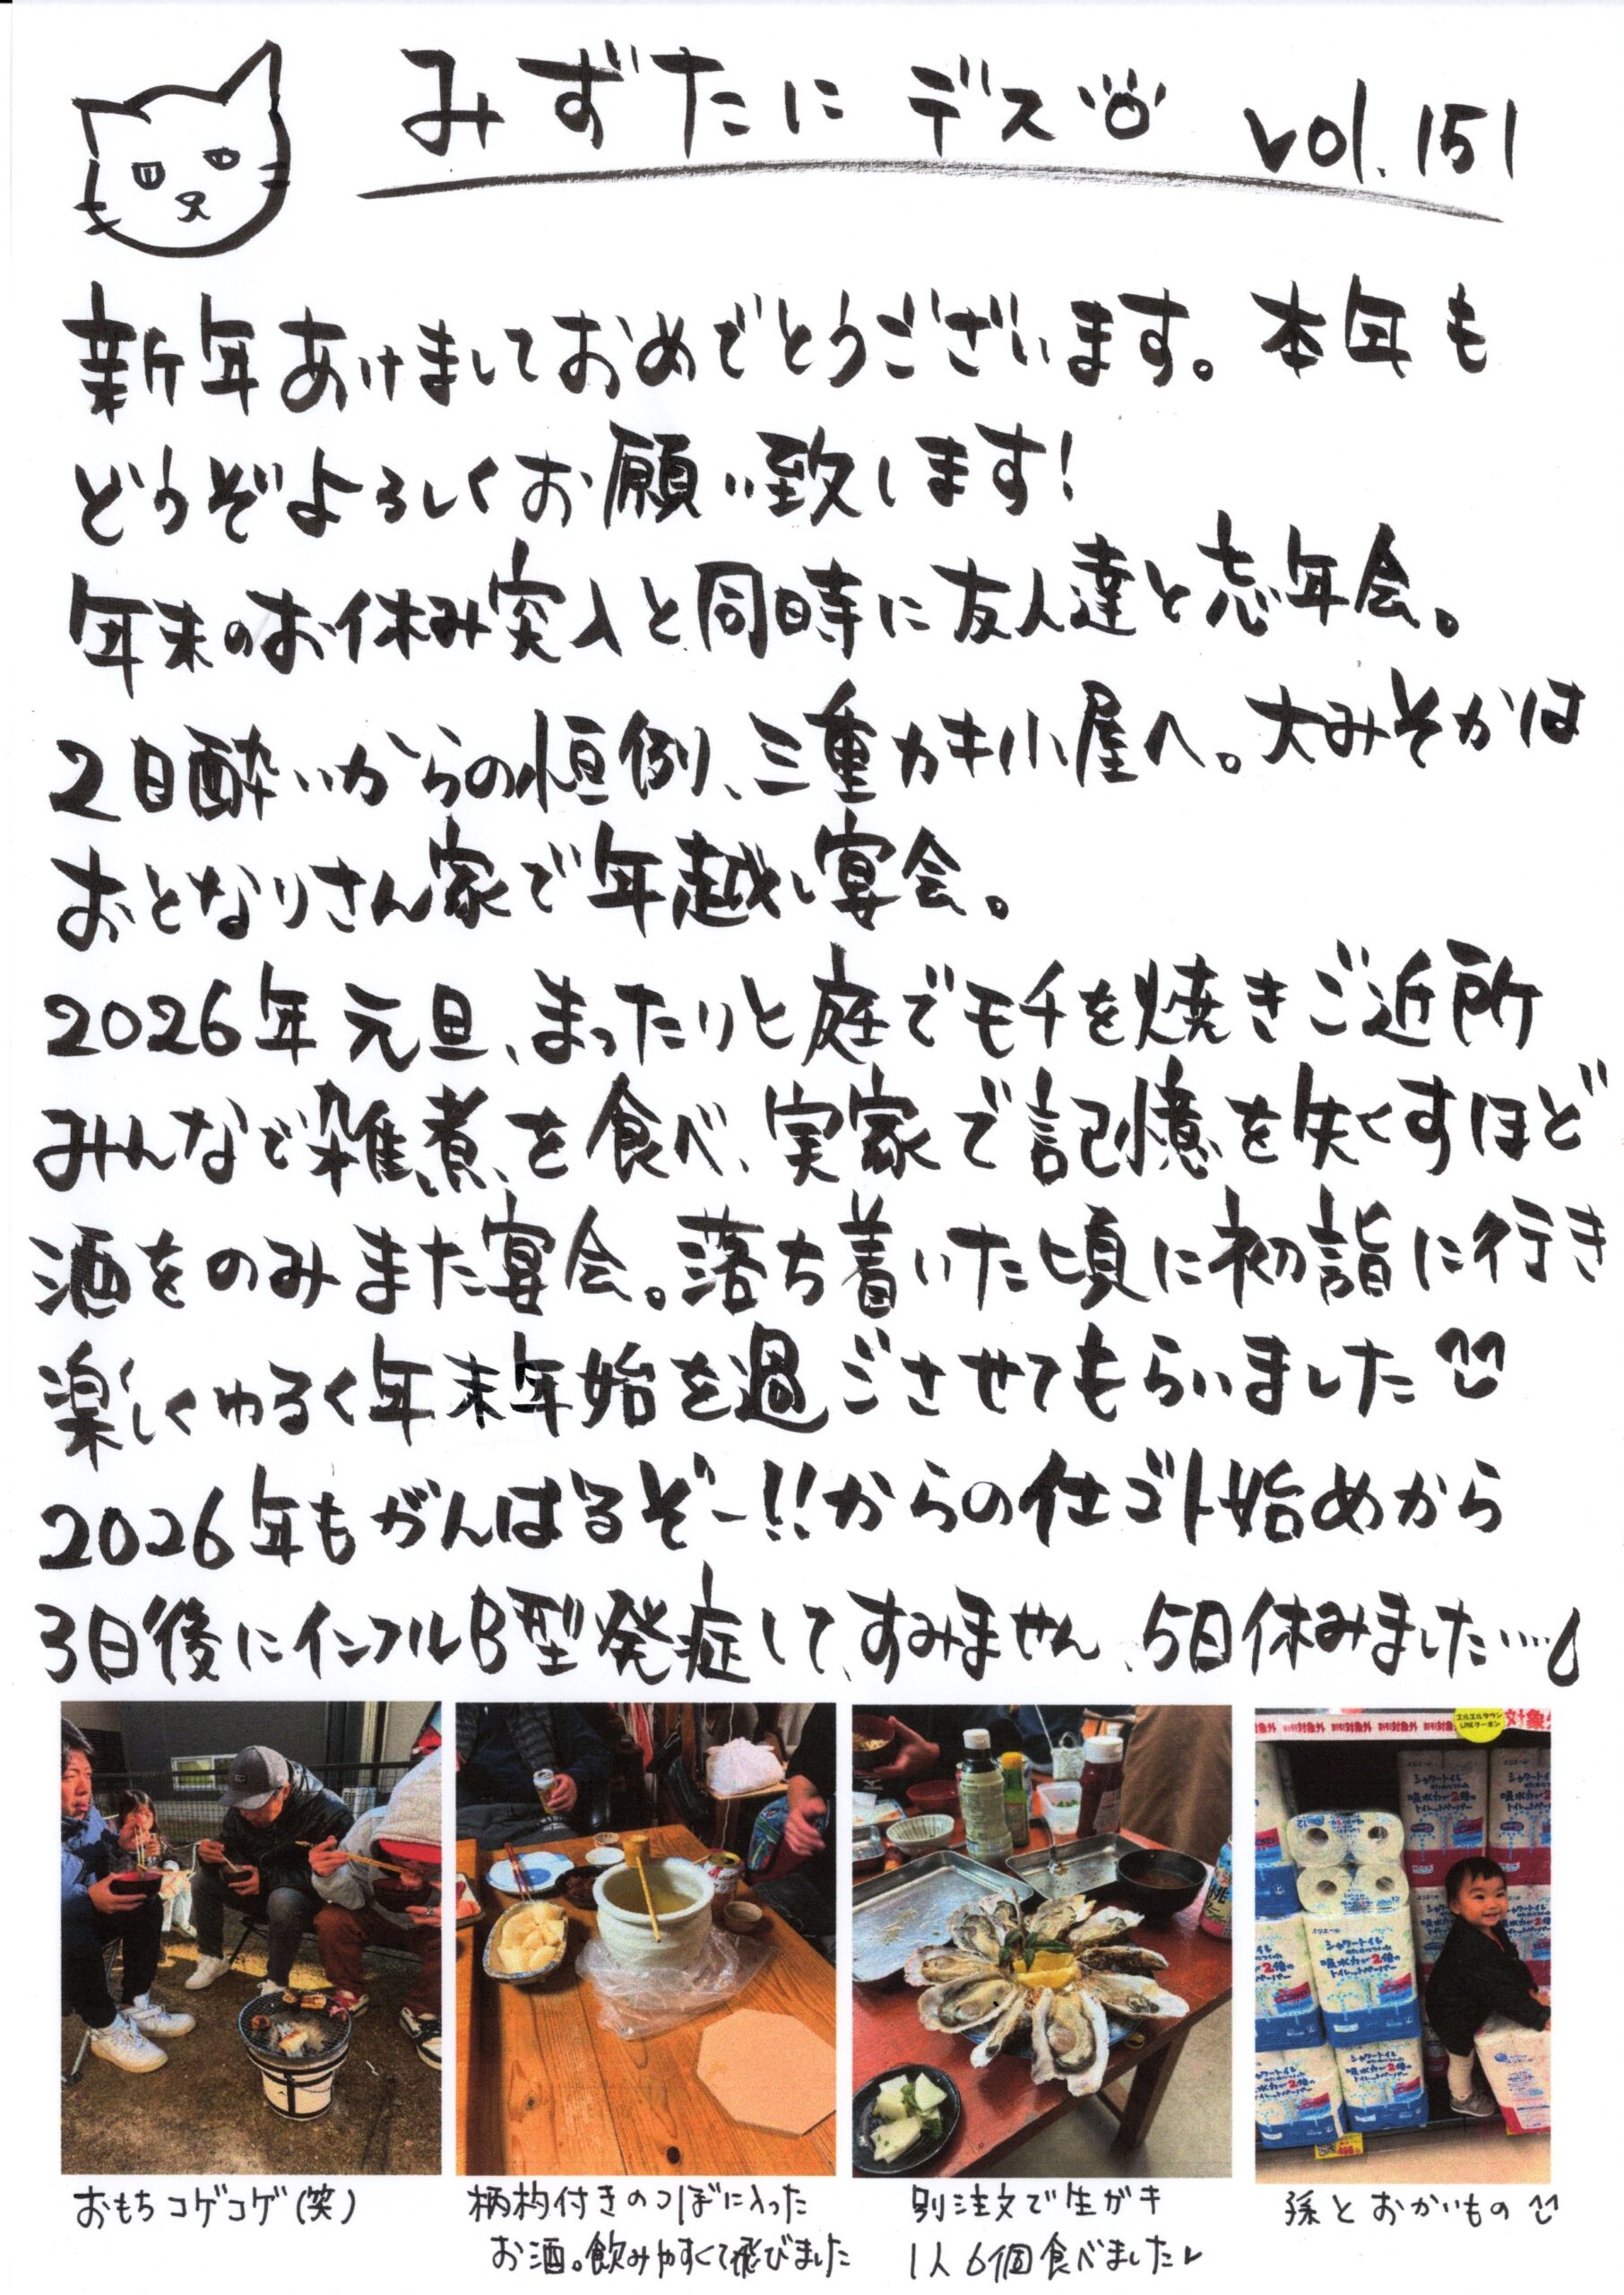 みずたにデス vol.151
新年あけましておめでとうございます。本年も
どうぞよろしくお願い致します!
年末のお休み突入と同時に友人達と忘年会。
2日酔いからの恒例、三重カキ小屋へ。大みそかは
おとなりさん家で年越し宴会。
2026年元旦、まったりと庭でモチを焼きご近所
みんなで雑煮を食べ、実家で記憶を失くすほど
酒をのみまた宴会。落ち着いた頃に初詣に行き
楽しくゆるく年末年始を過ごさせてもらいました
2026年もがんばるぞー!!からの仕ゴト始めから
3日後にインフルB型発症して、すみません、5日休みました....
エルエルタウン
LINEクーポン
割引対象外 割引対象外 対象外
シャワートイレ
のためにつくった
吸水力が2倍の
トイレットペーパー
おもちコゲコゲ(笑)
柄杓付きのつぼに入った
お酒。飲みやすくて飛びました
別注文で生ガキ
1人6個食べました
孫とおかいもの